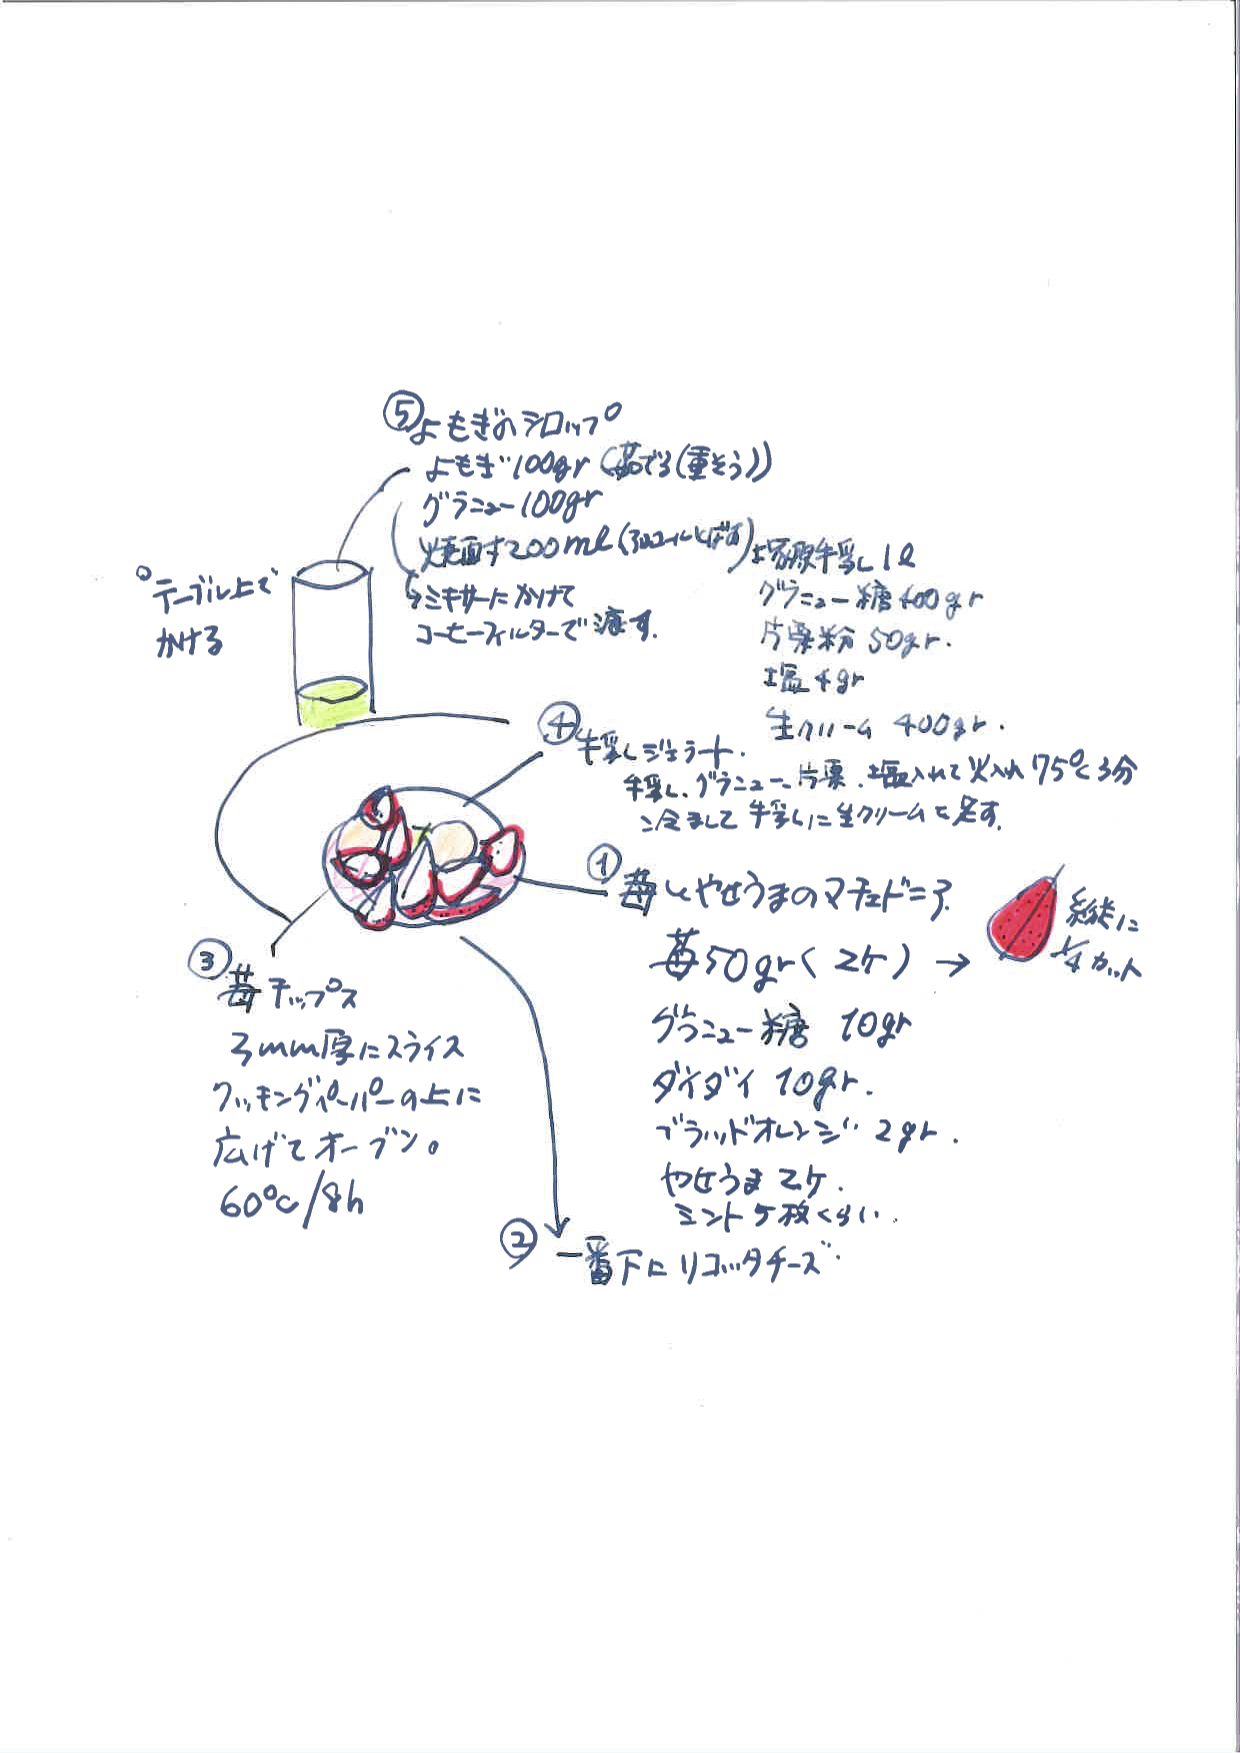 ⑤よもぎのシロップ
よもぎ100gr (茹でる(重そう))
グラニュー100gr
焼酎200ml(アルコールとばす)
→ミキサーにかけて
コーヒーフィルターで漉す.
°テーブル上で
かける
塚原牛乳 1l
グラニュー糖 400gr
片栗粉 50gr.
塩 4gr
生クリーム 400gr.
④牛乳ジェラート.
牛乳、グラニュー、片栗、塩入れて火入れ 75℃3分
冷まして牛乳に生クリームを足す.
①苺とやせうまのマチェドニア
苺50gr(2ケ) →
縦に
1/4カット
グラニュー糖 10gr
ダイダイ 10gr.
ブラッドオレンジ 2gr.
やせうま 2ケ.
ミント5枚くらい.
③苺チップス
3mm厚にスライス
クッキングペーパーの上に
広げてオーブン。
60℃/8h
②一番下にリコッタチーズ.